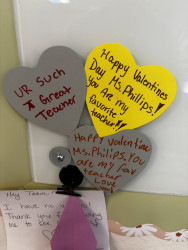 UR Such
A Great
Teacher
Happy Valentines
Day Ms. Phillips!
You Are my
favorite
teacher!!
Happy Valentine
Ms. Philips. You
are my fav
teacher
Love
Hey Team,
I have no
Thank you f
me
to see